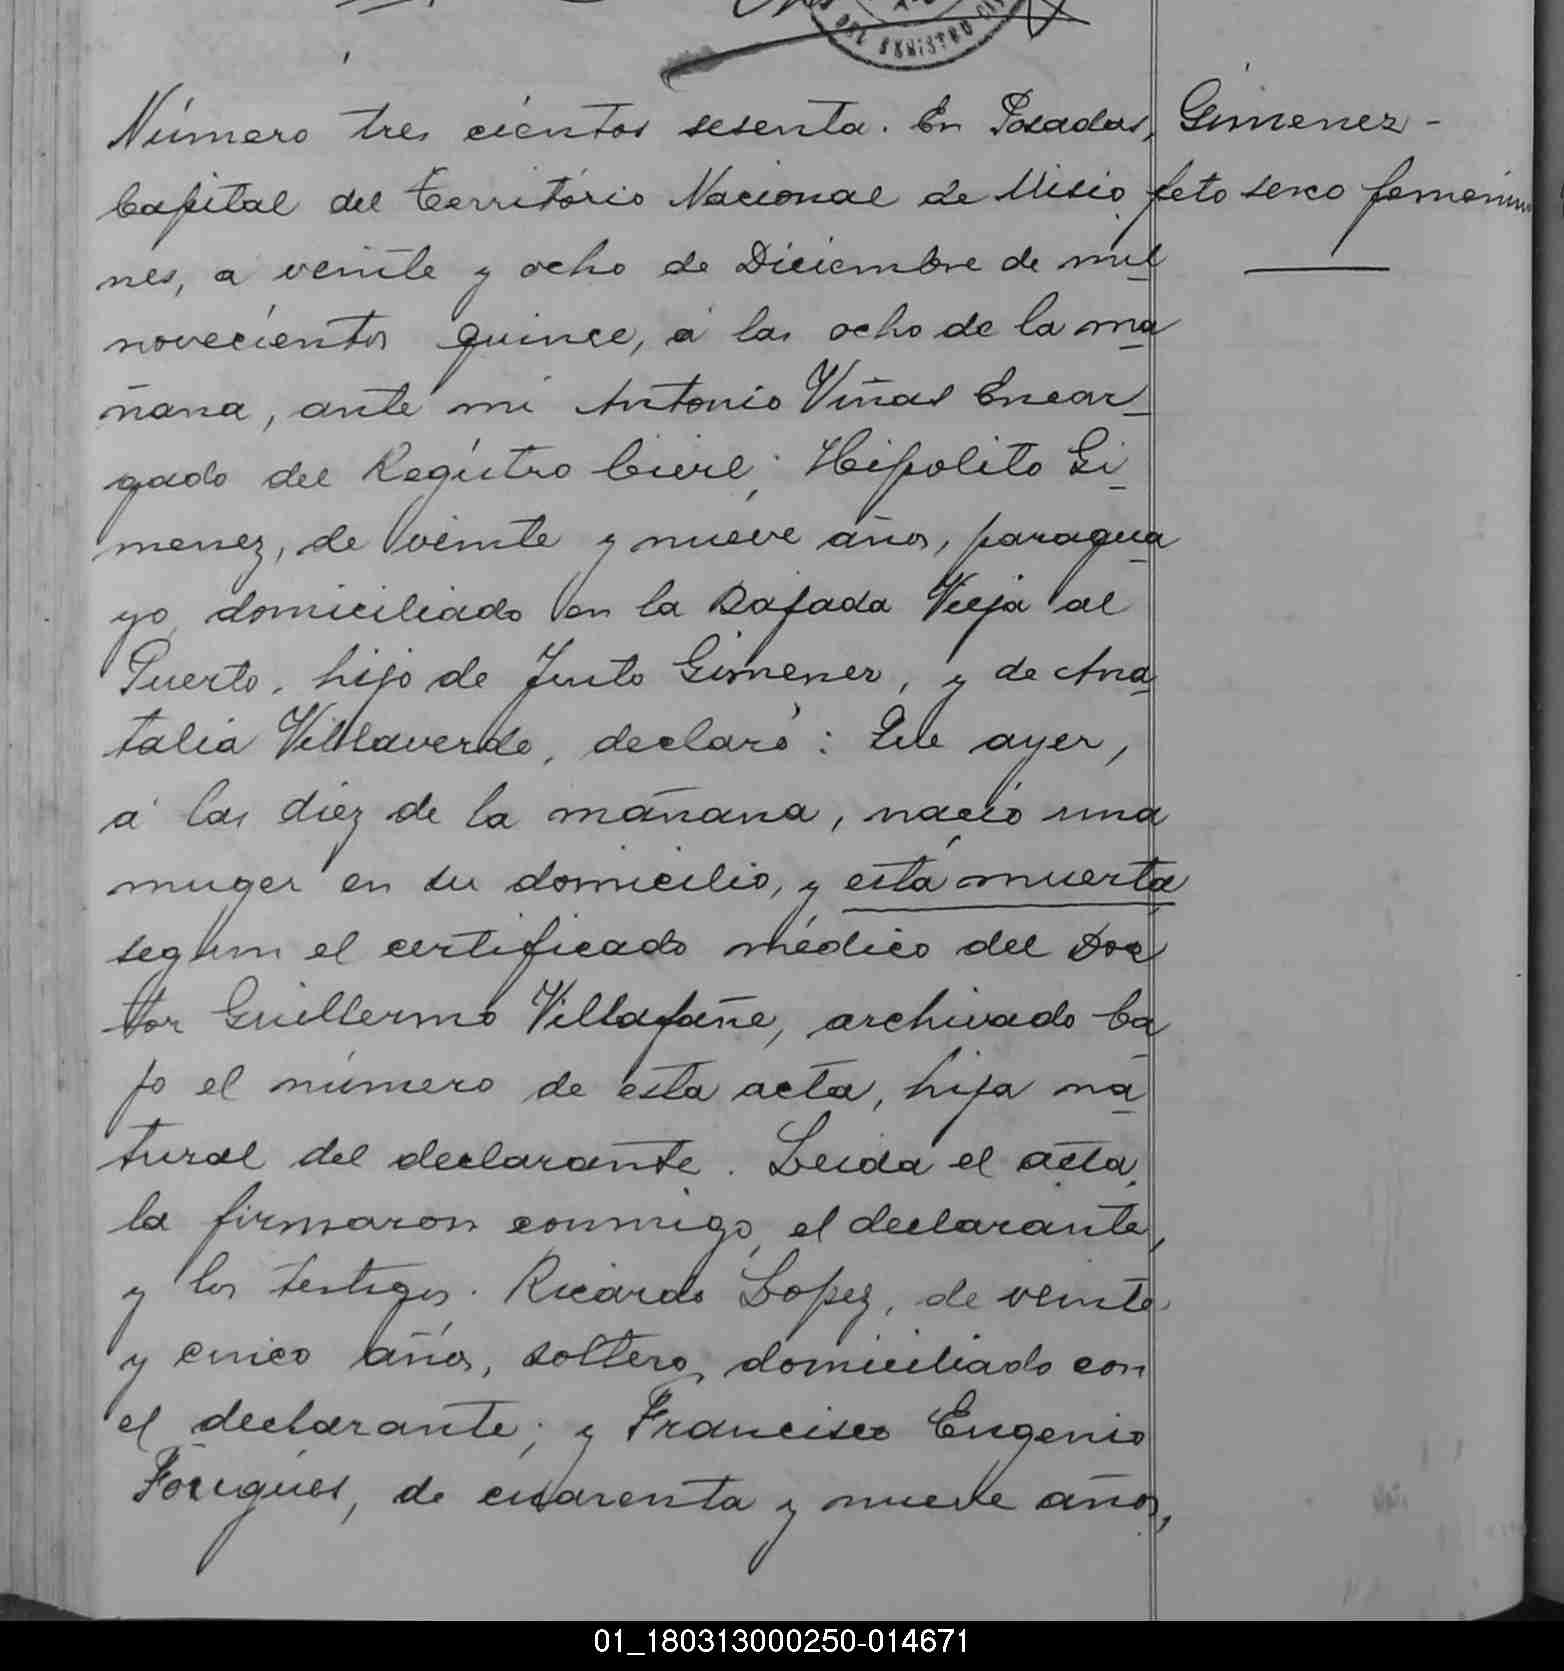 DEL REGISTRO CI
Número tres cientos sesenta. En Posadas,
Capital del Território Nacional de Misio
nes, a veinte y ocho de Diciembre de mil
novecientos quince, á las ocho de la ma
ñana, ante mi Antonio Viñas Encar
gado del Registro Civil; Hipolito Gi
menez, de veinte y nueve años, paragua
yo, domiciliado en la Bajada Vieja al
Puerto, hijo de Justo Gimenez, y de Ana
talia Villaverde, declaró: Que ayer,
á las diez de la mañana, nació una
muger en su domicilio, y está muerta
segun el certificado médico del Doc
tor Guillermo Villafañe, archivado ba
jo el número de esta acta, hija na
tural del declarante. Leida el acta,
la firmaron conmigo, el declarante,
y los testigos. Ricardo Lopez, de veinte
y cinco años, soltero, domiciliado con
el declarante; y Francisco Eugenio
Fougues, de cuarenta y nueve años,
Gimenez -
feto sexo femenino
01_180313000250-014671